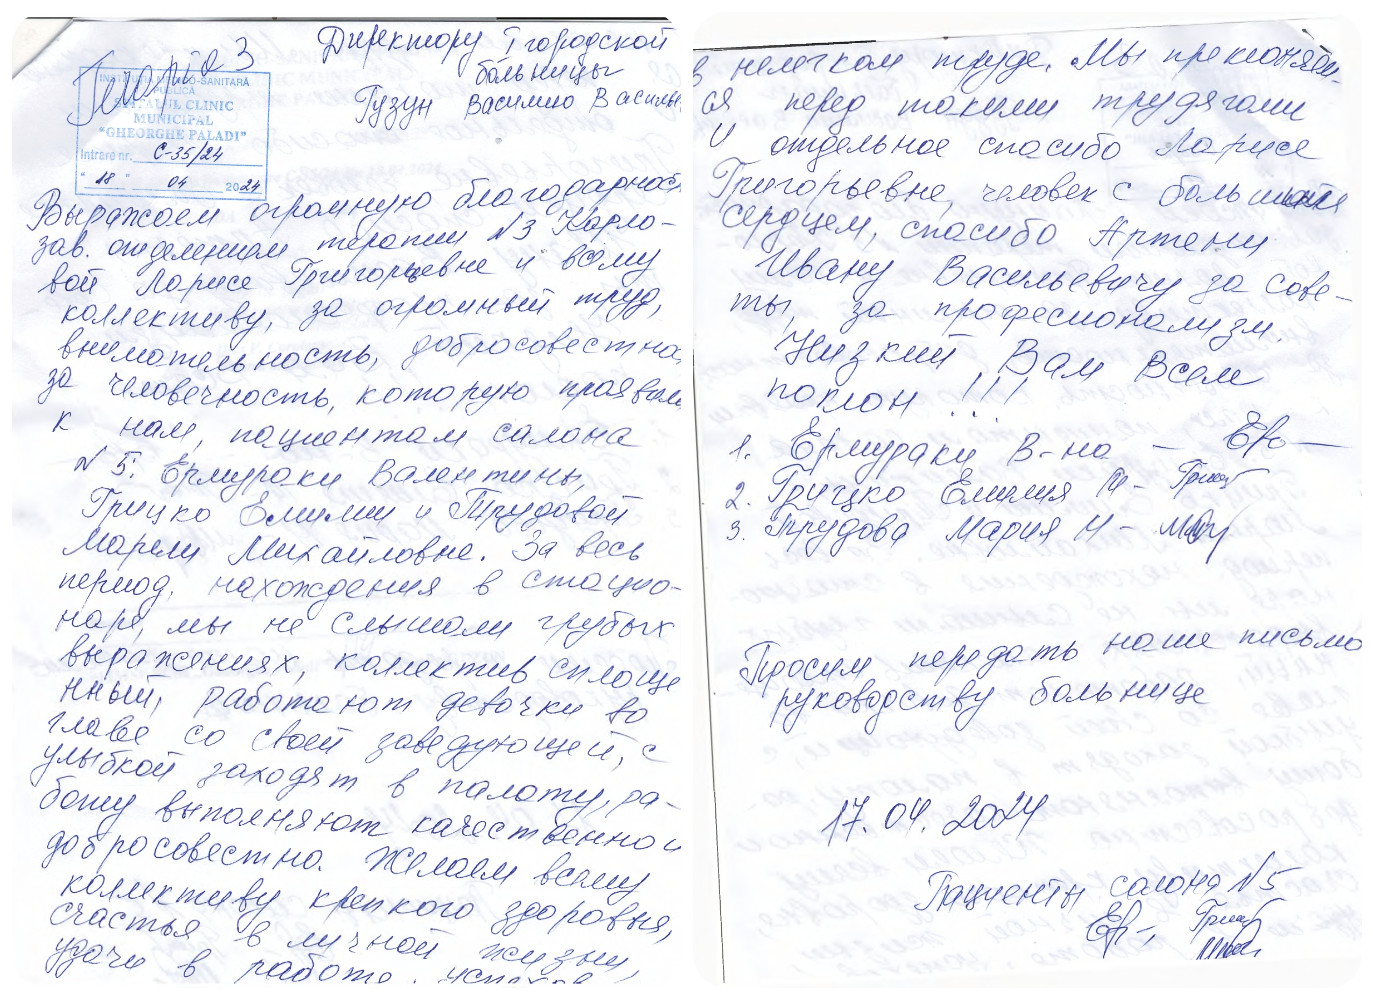 Терапия 3
Директору I городской
больницы
Гузун Василию Василье
INSTITUȚIA MEDICO-SANITARĂ
PUBLICĂ
SPITALUL CLINIC
MUNICIPAL
"GHEORGHE PALADI"
Intrare nr. C-35/24
"18" 04 2024
Выражаем огромную благодарност
зав. отделением терапии №3 Карло-
вой Ларисе Григорьевне и всему
коллективу, за огромный труд,
внимательность, добросовестно
за человечность, которую прояви
к нам, пациентам салона
№5: Ермураки Валентины,
Грицко Емилии и Трудовой
Марели Михайловне. За весь
период, нахождения в стацио-
наре, мы не слышали грубых
выражениях, коллектив сплоще
нный, работают девочки во
главе со своей заведующей, с
улыбкой заходят в палату, ра-
боту выполняют качественно и
добросовестно. Желаем всему
коллективу крепкого здоровья,
счастья в личной жизни,
удачи в работе, успехов
в нелегком труде. Мы преклоняем-
ся перед такими трудягами
И отдельное спасибо Ларисе
Григорьевне, человек с большим
сердцем, спасибо Артени
Ивану Васильевичу за сове-
ты, за професионализм.
Низкий Вам Всем
поклон !!!
1. Ермураки В-на –
2. Грицко Емилия М-
3. Трудова Мария М-
Просим передать наше письмо
руководству больнице
17.04.2024
Пациенты салона №5